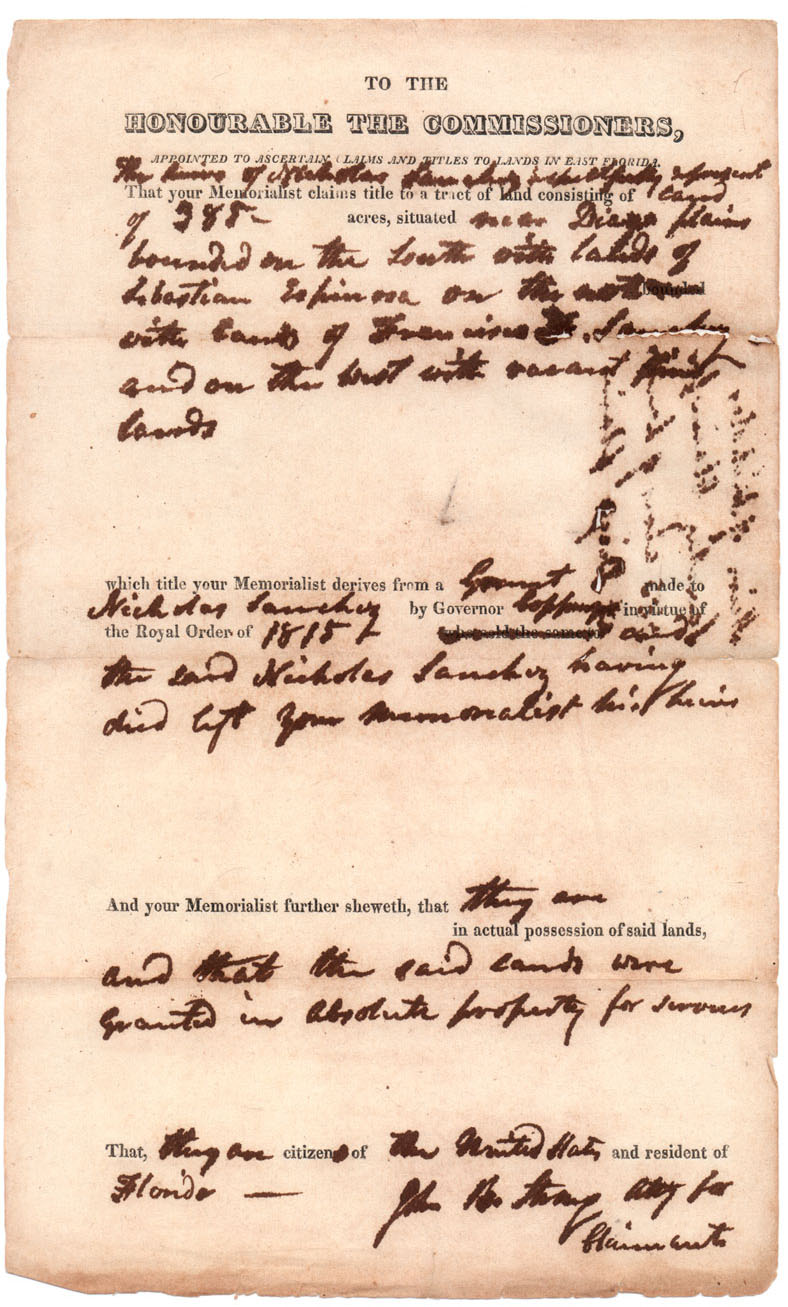 TO THE
HONOURABLE THE COMMISSIONERS,
APPOINTED TO ASCERTAIN CLAIMS AND TITLES TO LANDS IN EAST FLORIDA.
The heirs of Nicholas Sanchez respectfully represent
That your Memorialist claims title to a tract of land consisting of land
of 385 acres, situated near Diana plains
bounded on the South with lands of
Sebastian Espinosa on the north bounded
with lands of Francisco Sanchez
and on the West with vacant
lands
which title your Memorialist derives from a Grant made to
Nicholas Sanchez by Governor Coppinger in virtue of
the Royal Order of 1815 and
the said Nicholas Sanchez having
died left your memorialist his heirs
And your Memorialist further sheweth, that they are
in actual possession of said lands,
and that the said lands were
granted in absolute property for services
That, they are citizens of the United States and resident of
Florida —
John Atty for
Claimants